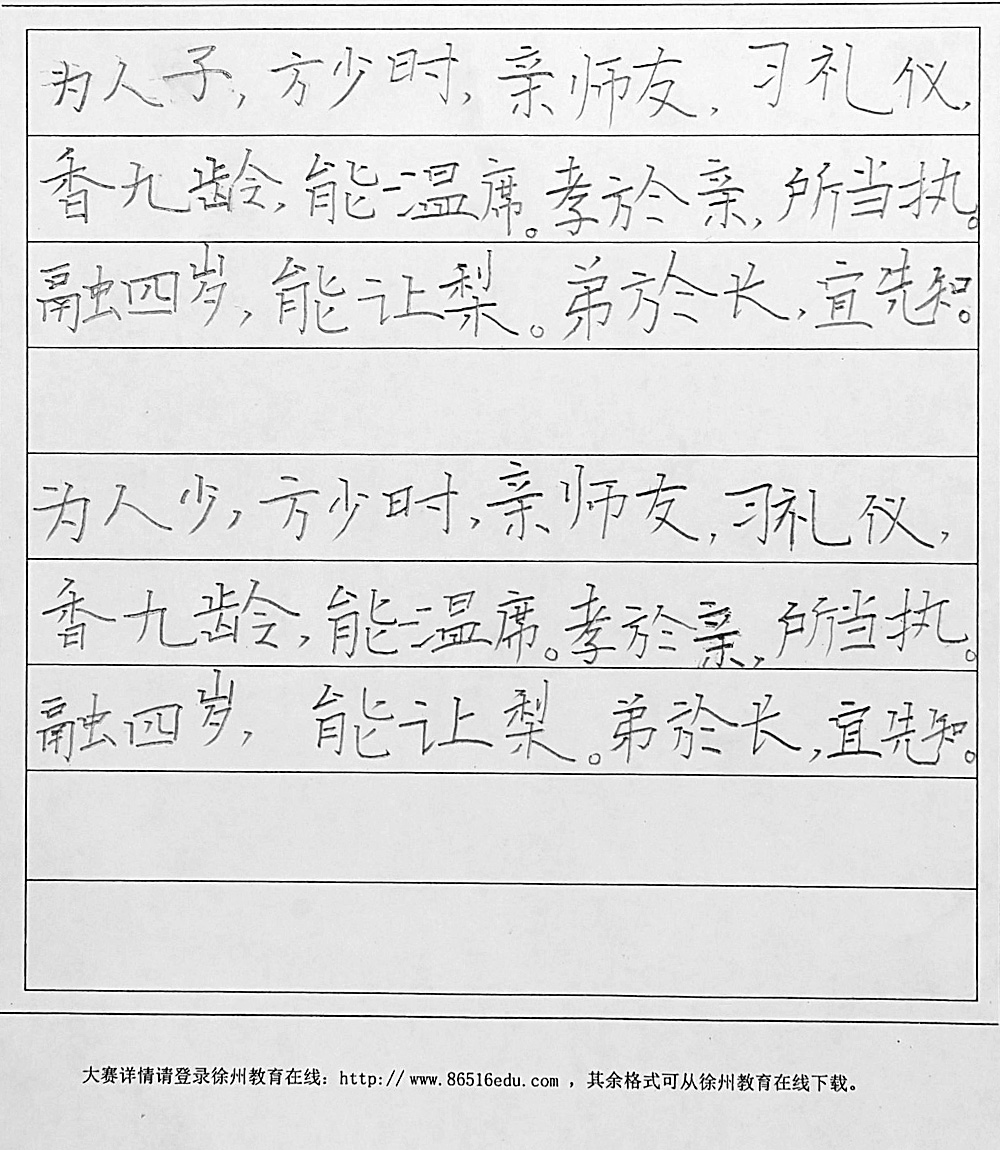 为人子,方少时,亲师友,习礼仪,
香九龄,能温席。孝於亲,所当执。
融四岁,能让梨。弟於长,宜先知。
为人少,方少时,亲师友,习礼仪,
香九龄,能温席。孝於亲,所当执。
融四岁,能让梨。弟於长,宜先知。
大赛详情请登录徐州教育在线:http://www.86516edu.com ,其余格式可从徐州教育在线下载。